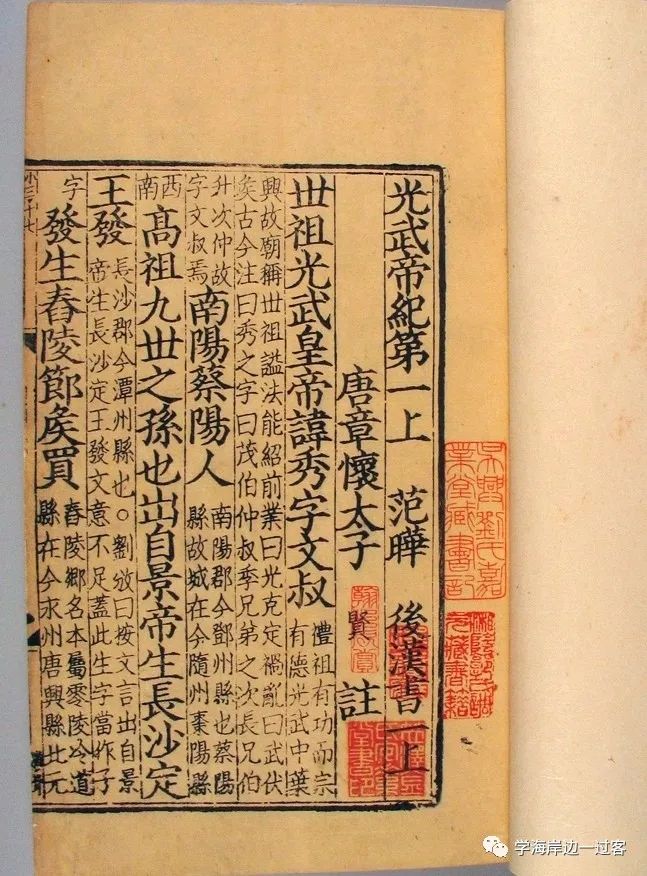 光武帝紀第一上 范曄 後漢書一上
唐章懷太子 賢 註
丗祖光武皇帝諱秀字文叔
禮祖有功而宗
有德光武中葉
興故廟稱丗祖諡法能紹前業曰光克定禍亂曰武伏
矦古今注曰秀之字曰茂伯仲叔季兄弟之次長兄伯
升次仲故
字文叔焉
南陽蔡陽人
南陽郡今鄧州縣也蔡陽
縣故城在今隨州棗陽縣
西
南
髙祖九丗之孫也出自景帝生長沙定
王發
長沙郡今潭州縣也。劉攽曰按文言出自景
帝生長沙定王發文意不足蓋此生字當作子
字
發生舂陵節矦買
舂陵鄉名本屬零陵泠道
縣在今永州唐興縣北元
吳興劉氏嘉
業堂藏書記
学海岸边一过客